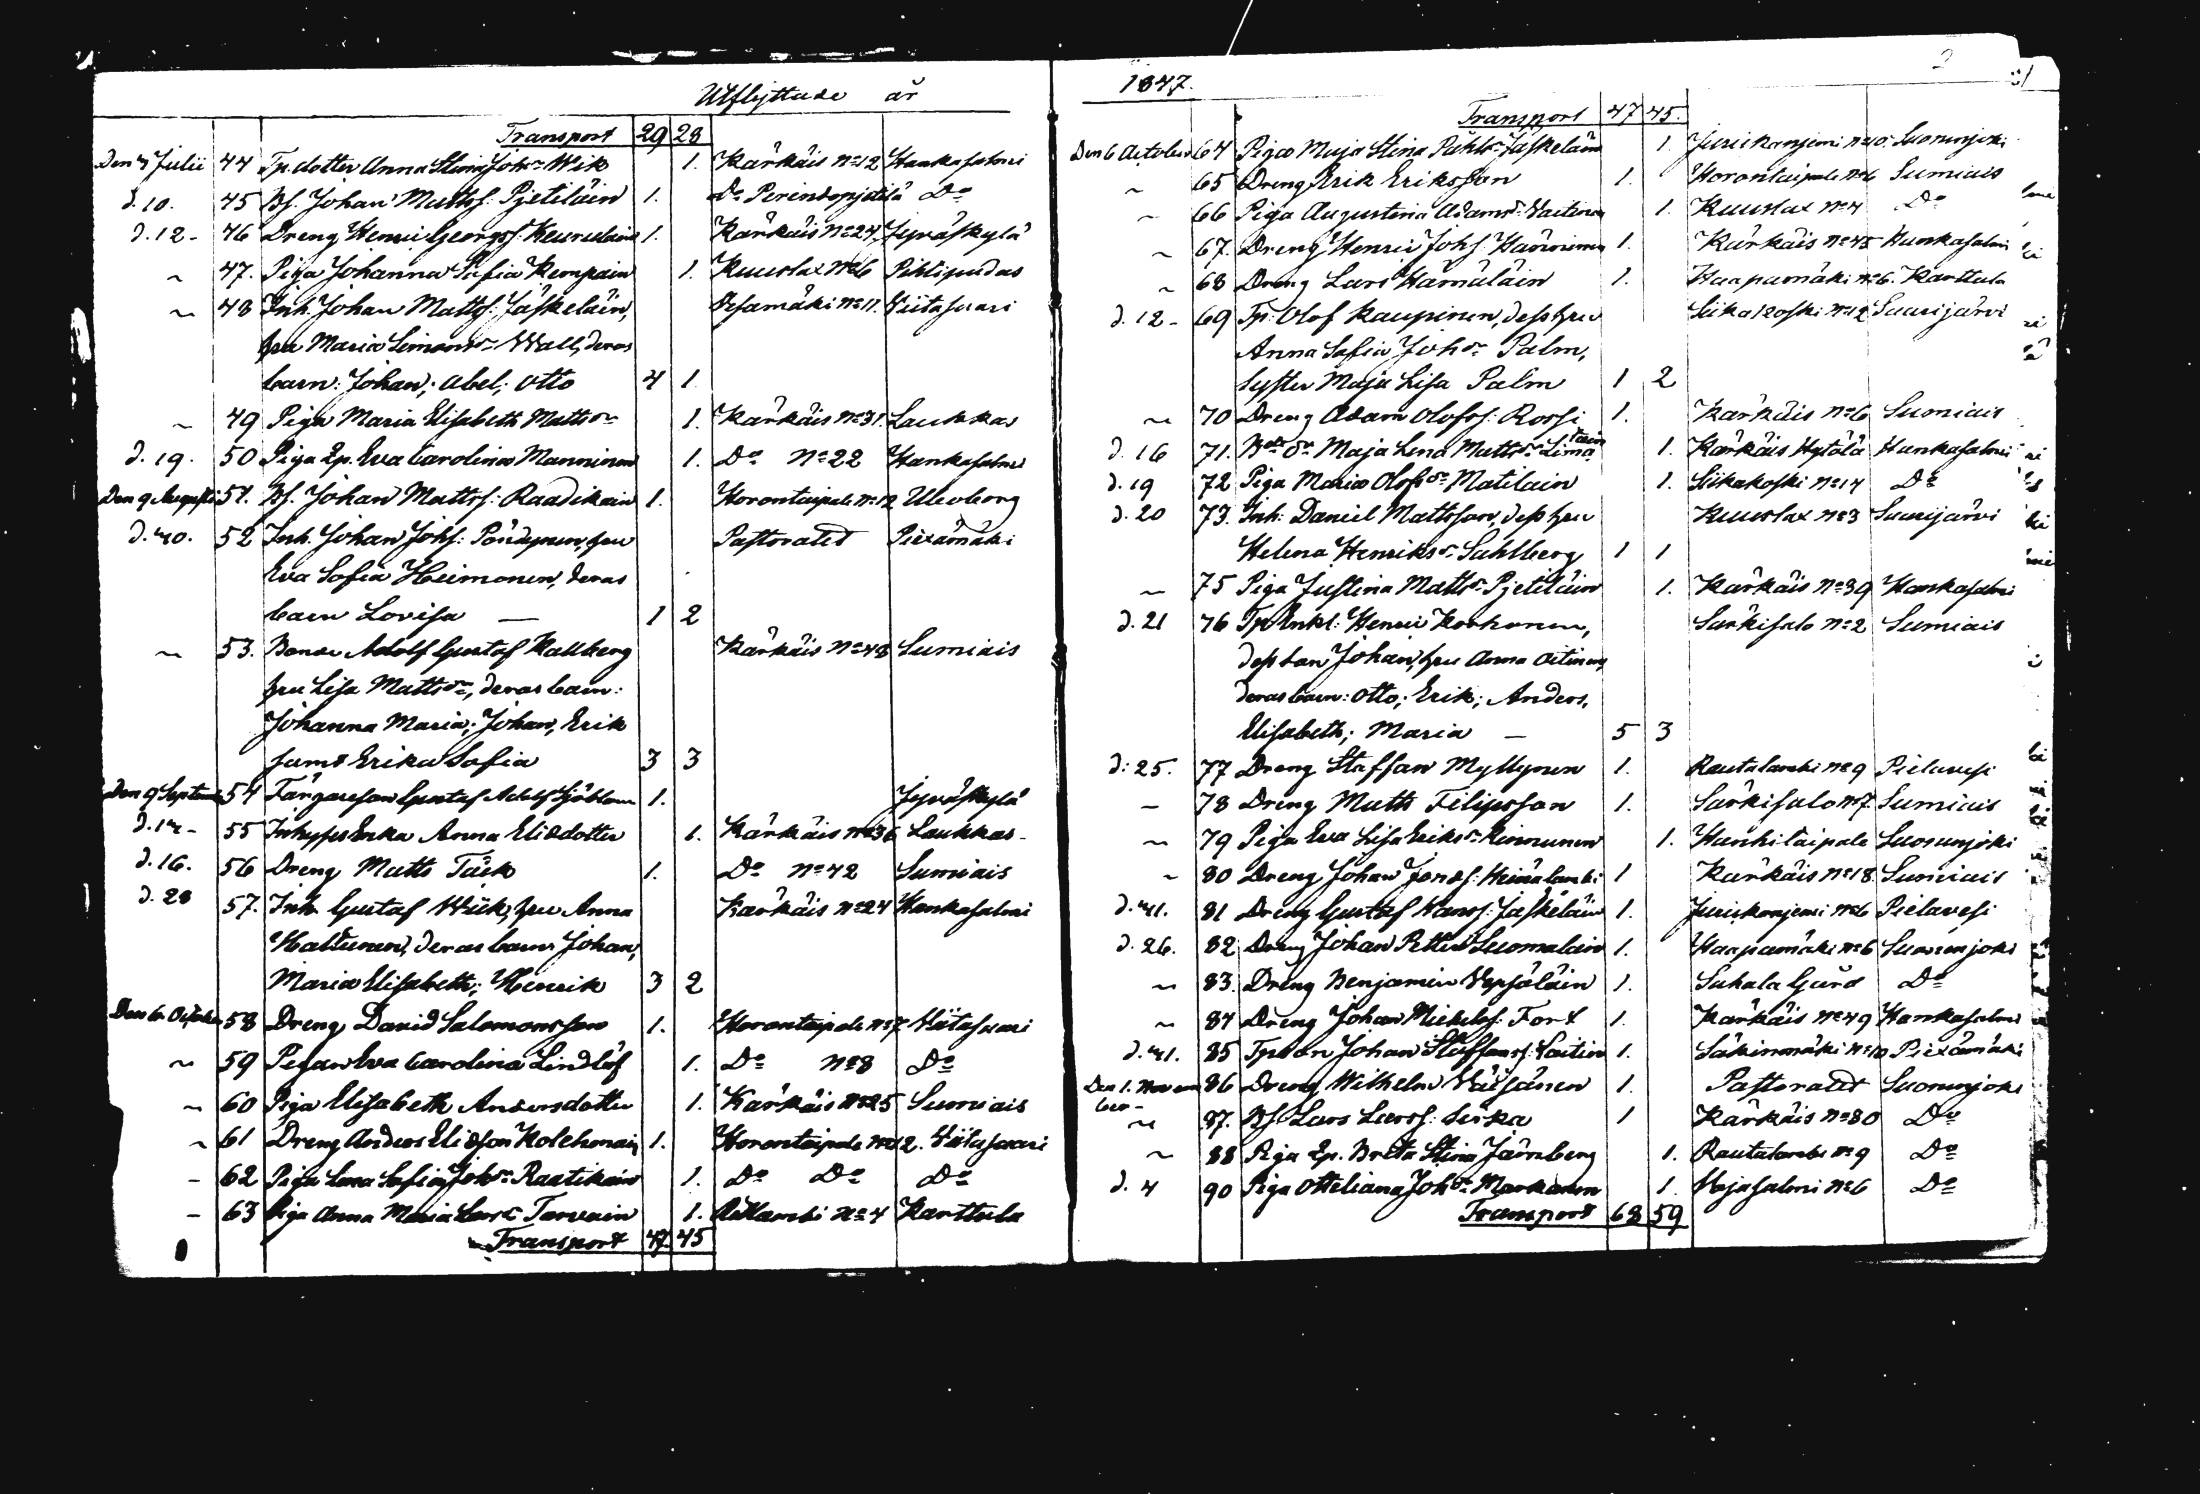 Utflyttade år
Transport 29 28
Den 7 Julii 44 Tp. dotter Anna Stina Johsdr Wik 1. Kärkäis No 12 Hankasalmi
d. 10. 45 Bs. Johan Mattss: Pjetiläin 1. Do Perindopjetilä Do
d. 12 - 46 Dreng Henric Georgss: Keurulain 1. Kärkäis No 24. Jyväskylä
~ 47. Piga Johanna Sofia Kempain 1. Kuuslax No 6 Pihtipudas
~ 48 Inh. Johan Mattss: Jäskeläin, Wesamäki No 11. Viitasaari
hru Maria Simonsdr Wall, deras
barn: Johan; Abel; Otto 4 1
~ 49 Piga Maria Elisabeth Mattsdr 1. Kärkäis No 31. Laukkas
d. 19. 50 Piga Ep. Eva Carolina Manninen 1. Do No 22 Hankasalmi
Den 9 Augusti 51. Bs. Johan Mattss: Raadikain 1. Horontaipale No 12 Uleoborg
d. 40. 52 Inh. Johan Johss: Pöndynen, hru Pastoratet Piexämäki
Eva Sofia Heimonen, deras
barn Lovisa — 1 2
~ 53. Bonde Adolf Gustaf Kallberg Kärkäis No 48 Sumiais
hru Lisa Mattsdr, deras barn:
Johanna Maria; Johan, Erik
samt Erika Sofia 3 3
Den 9 September 54 Färgaresson Gustaf Adolf Sjöblom 1. Jyväskylä
d. 12 - 55 Inhyses Enka Anna Eliedotter 1. Kärkäis No 36 Laukkas -
d. 16. 56 Dreng Matts Täck 1. Do No 42 Sumiais
d. 28 57. Inh. Gustaf Wiik, hru Anna Kärkäis No 24 Hankasalmi
Haltunen, deras barn Johan,
Maria Elisabeth; Henrik 3 2
Den 6. October 58 Dreng David Salomonsson 1. Horontaipale No 7 Viitasaari
~ 59 Pigan Eva Carolina Lindlöf 1. Do No 8 Do
~ 60 Piga Elisabeth Andersdotter 1. Kärkäis No 25 Sumiais
~ 61 Dreng Anders Eliasson Kolehmain 1. Horontaipale No 12. Viitasaari
- 62 Piga Lena Sofia Johsdr Raatikain 1. Do Do Do
- 63 Piga Anna Maria Larsdr Tarvain 1. Rautlambi No 4 Karttula
Transport 47. 45
1847.
Transport 47 45.
Den 6 October 64 Piga Maja Stina Påhlsdr Jäskeläin 1. Jurickaniemi No 10. Suonenjoki
~ 65 Dreng Erik Eriksson 1. Horontaipale No 6 Sumiais
~ 66 Piga Augustina Adamsdr Vartinen 1. Kuuslax No 4 Do
~ 67. Dreng Henric Johss Häävinen 1. Kärkäis No 48 Hankasalmi
~ 68 Dreng Lars Hämäläin 1. Haapamäki No 6. Karttula
d. 12 - 69 Tp. Olof Kaupinen, dess hru Siikakoski No 12 Saarijärvi
Anna Sofia Johsdr Palm,
Syster Maja Lisa Palm 1 2
~ 70 Dreng Adam Olofss: Rossi 1. Kärkäis No 6 Sumiais
d. 16 71. Maja Lena Mattsdr 1. Kärkäis Hytölä Hankasalmi
d. 19 72 Piga Maria Olofsdr Matilain 1. Siikakoski No 14 Do
d. 20 73. Inh. Daniel Mattsson, dess hru Kuuslax No 3 Saarijärvi
Helena Henriksdr Sahlberg 1 1
~ 75 Piga Justina Mattsdr Pjetiläin 1. Kärkäis No 39 Hankasalmi
d. 21 76 Tp. Enkl: Henric Korhonen, Särkisalo No 2 Sumiais
dess Son Johan, hru Anna Oitinen,
deras barn: Otto; Erik; Anders,
Elisabeth; Maria — 5 3
d: 25. 77 Dreng Staffan Myllynen 1. Rautalambi No 9 Pielavesi
~ 78 Dreng Matts Filipsson 1. Särkisalo No 7. Sumiais
~ 79 Piga Eva Lisa Eriksdr Kinnunen 1. Hanhitaipale Suonenjoki
~ 80 Dreng Johan Jonass: Heinälambi 1 Kärkäis No 18. Sumiais
d. 41. 81 Dreng Gustaf Hanss: Jäskeläin 1. Jurickaniemi No 6 Pielavesi
d. 26. 82 Dreng Johan Petter Suomalain 1. Haapamäki No 6 Suonenjoki
~ 83. Dreng Benjamin Vepsäläin 1. Suhala Gård Do
~ 84 Dreng Johan Mickelss: Fort 1. Kärkäis No 49 Hankasalmi
d. 41. 85 Tpson Johan Staffanss: Laitin 1. Säkinmäki No 10 Piexämäki
Den 1. Novem 86 Dreng Wilhelm Väisänen 1. Pastoratet Suonenjoki
ber -
~ 87. Bs Lars Larss: Sirka 1 Kärkäis No 30 Do
~ 88 Piga Ep. Breta Stina Järnberg 1. Rautalambi No 9 Do
d. 4 90 Piga Otteliana Johsdr Markanen 1. Wejasalmi No 6 Do
Transport 68 59